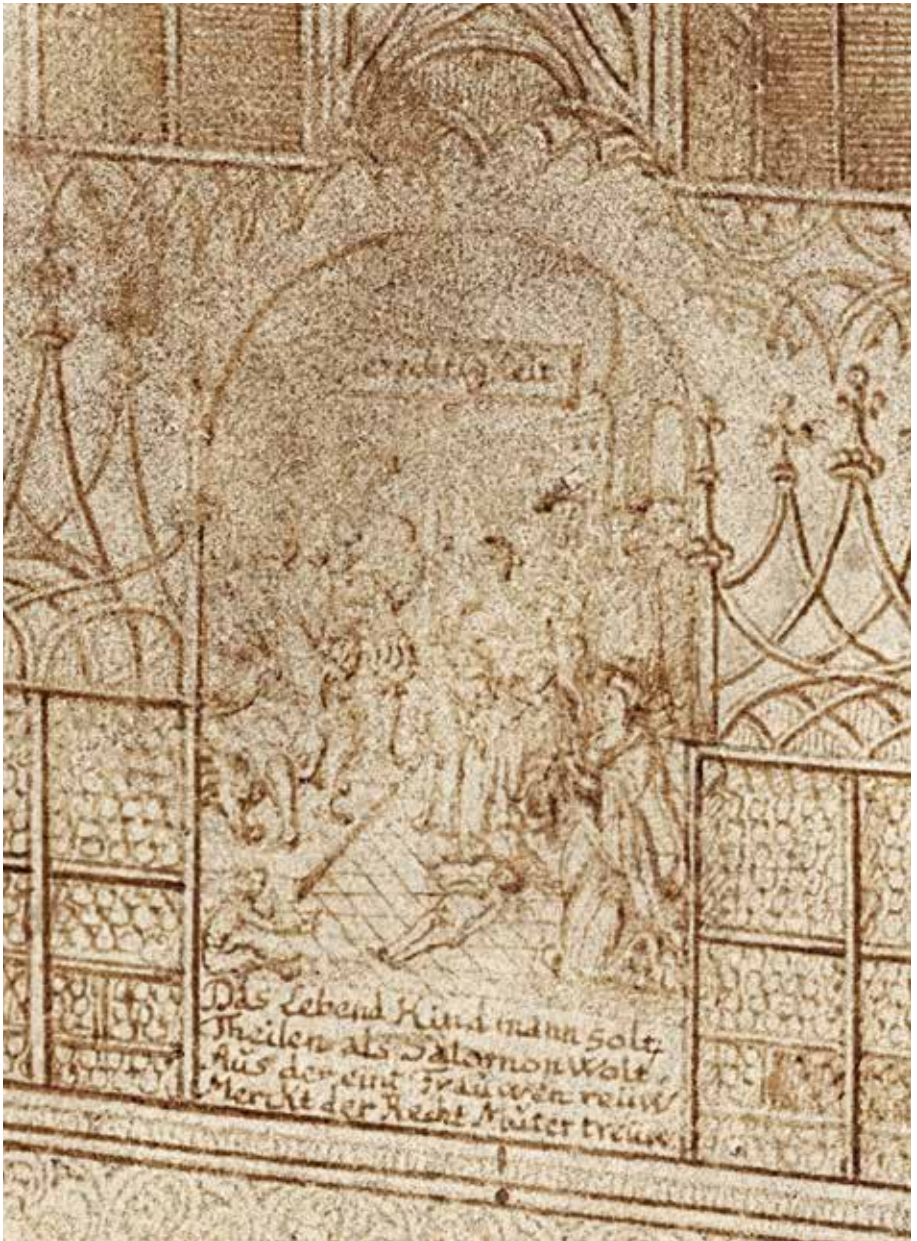 erechtigkeit
Das Lebend Kind mann solt,
Theilen als Salomon Wolt,
Aus der eint Frauwen reuw
Merckt der Recht Muter treuw